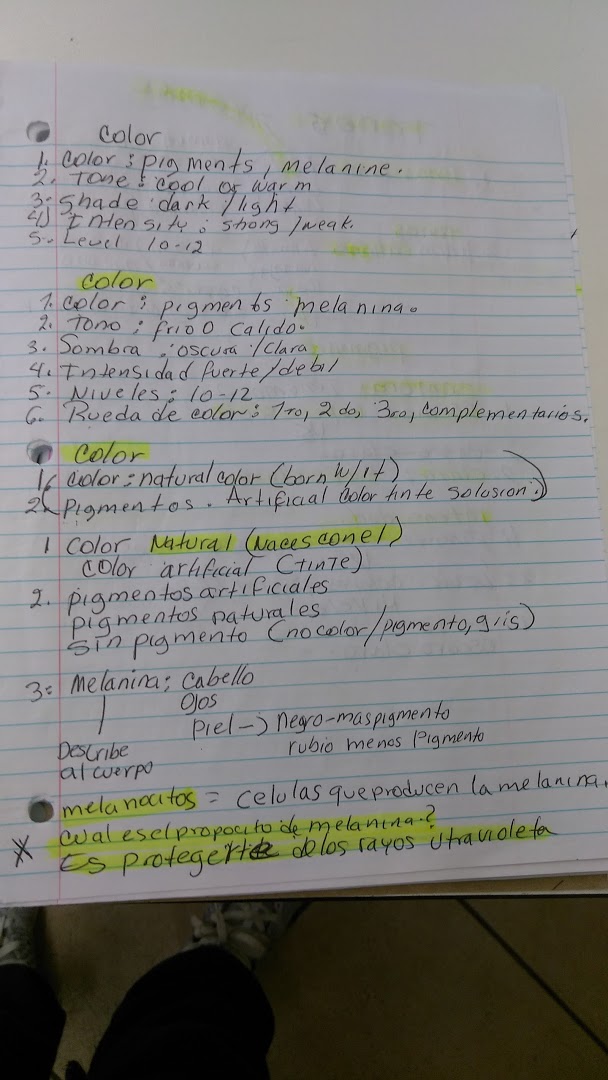 color
1. color : pigments, melanine.
2. Tone : cool or warm
3. Shade : dark / light
4) Intensity : strong /weak.
5. Level 10-12
color
1. color : pigments melanina.
2. Tono : frio o calido.
3. Sombra : oscura / clara
4. Intensidad fuerte/debil
5. Niveles : 10-12
6. Rueda de color : 1ro, 2do, 3ro, complementarios.
color
1( color : natural color (born w/it)
2( Pigmentos. Artificial color tinte solusion.)
1 color Natural (Naces con el)
color artificial (tinte)
2. pigmentos artificiales
pigmentos naturales
sin pigmento (no color/pigmento, gris)
3. Melanina; cabello
ojos
Piel -> Negro-mas pigmento
rubio menos Pigmento
Describe
al cuerpo
melanocitos = celulas que producen la melanina.
cual es el propocito de melanina.?
* Es proteger de los rayos utravioleta